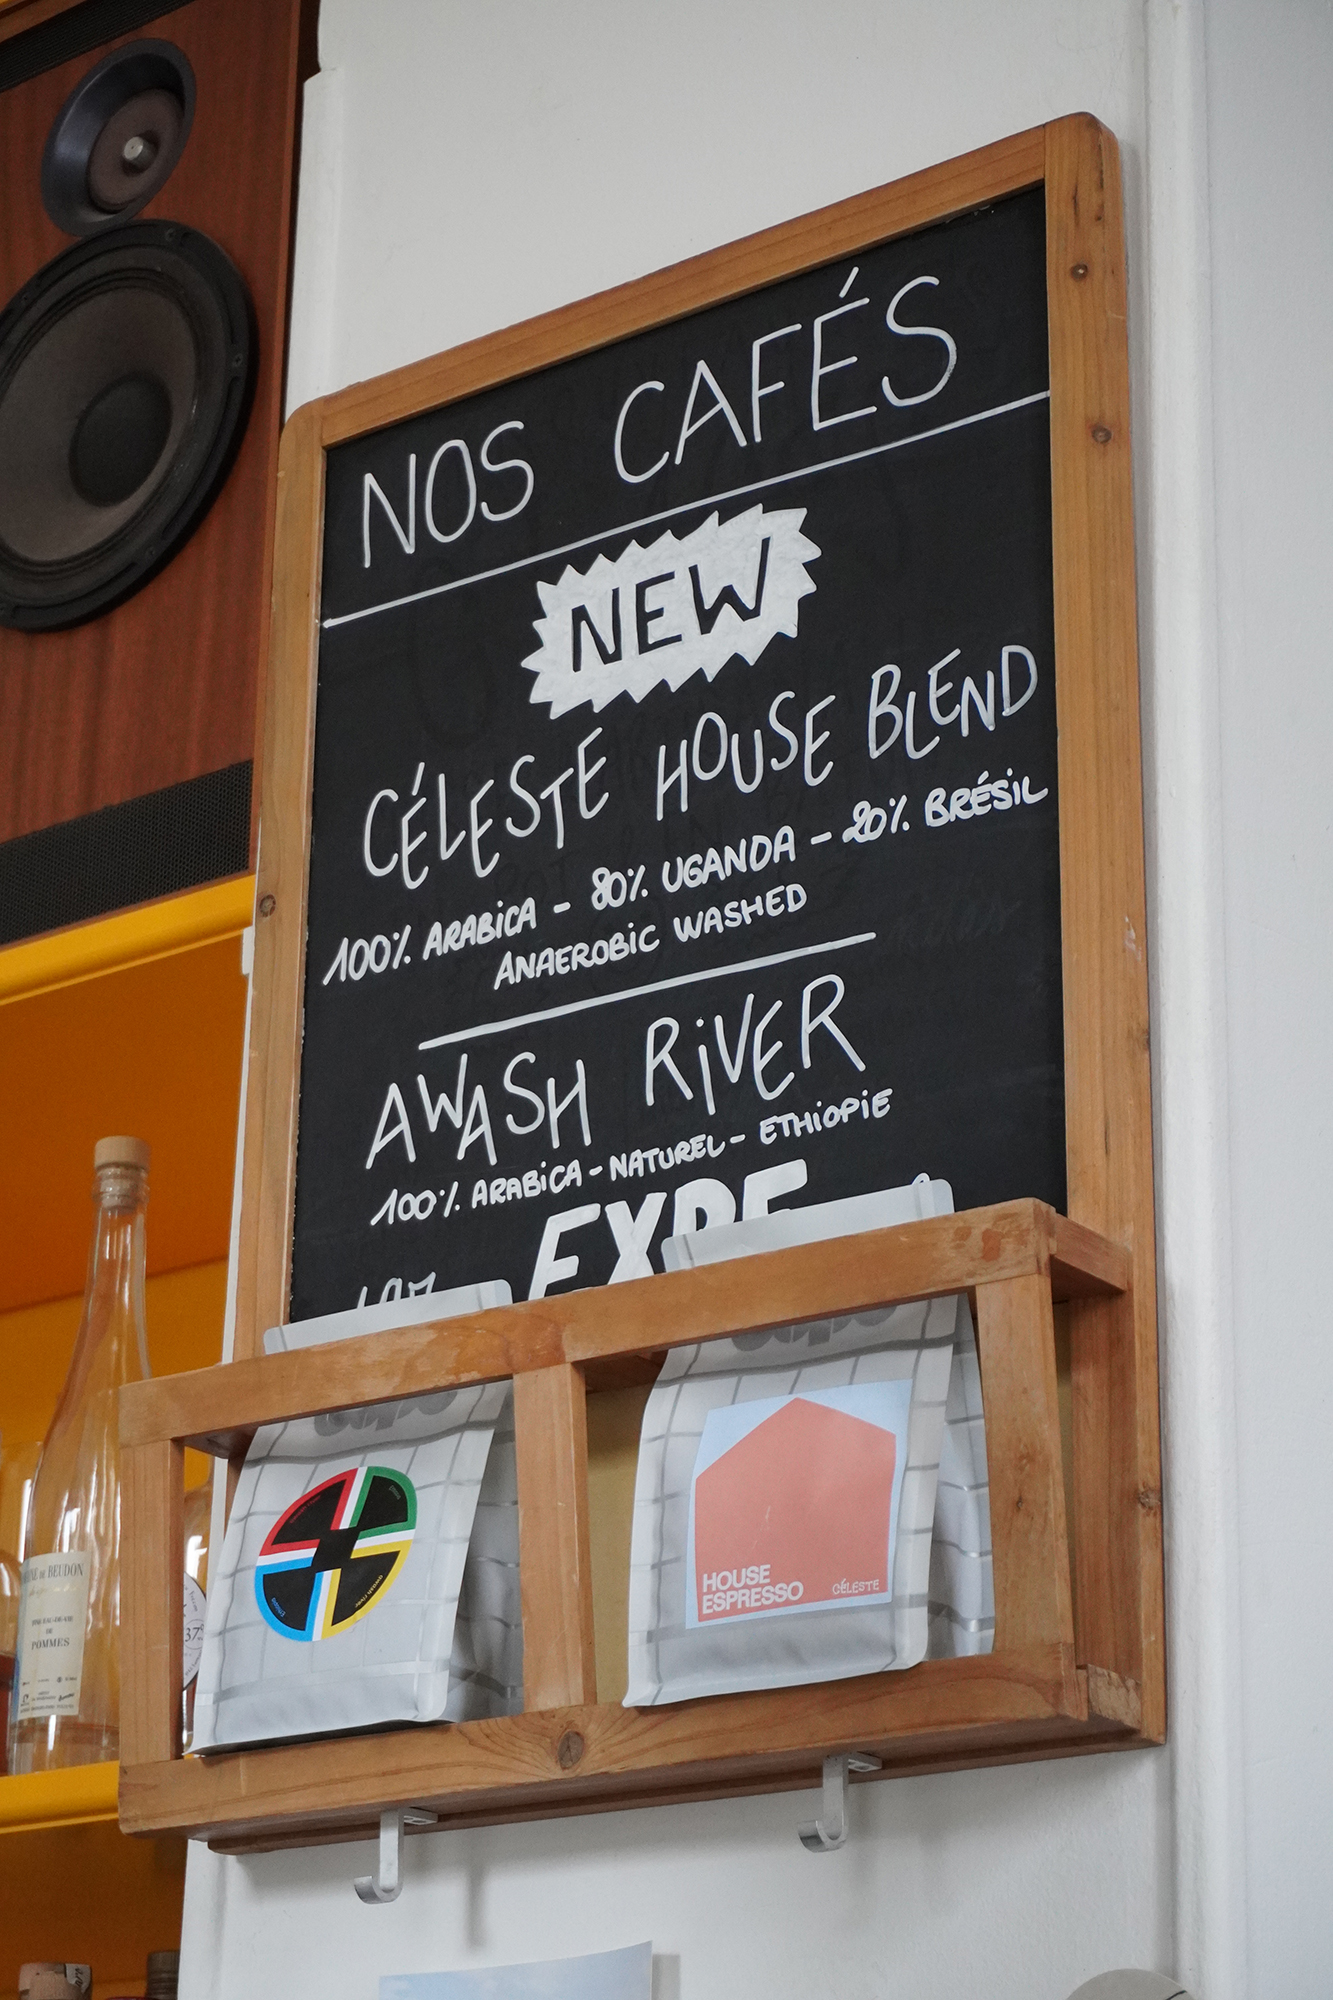 NOS CAFÉS
NEW
CÉLESTE HOUSE BLEND
100% ARABICA - 80% UGANDA - 20% BRÉSIL
ANAEROBIC WASHED
AWASH RIVER
100% ARABICA - NATUREL - ETHIOPIE
HOUSE
ESPRESSO
CÉLESTE
DE BEUDON
POMMES